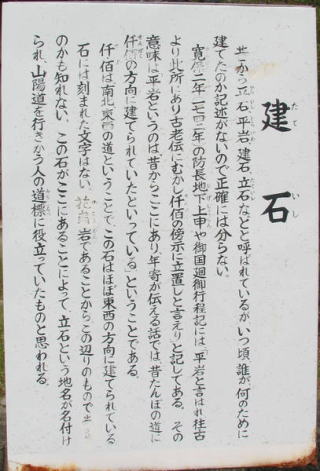 建石
たて いし
昔から立石、平岩、建石、立石などと呼ばれているが、いつ頃、誰が、何のために
建てたのか記述がないので正確には分らない。
寛保二年(一七四二年)の防長地下上申や御国廻御行程記には、平岩と言はれ往古
より此所にあり、古老伝にむかし仟佰の傍示に立置しと言えりと記してある。その
意味は「平岩というのは昔からここにあり、年寄が伝える話では、昔たんぼの道に
仟佰の方向に建てられていたといっている」ということである。
仟佰は南北東西の道ということで、この石はほぼ東西の方向に建てられている
石には刻まれた文字はない。 岩であることから、この辺りのもので
のかも知れない。この石がここにあることによって立石という地名が名付け
られ、山陽道を行きかう人の道標に役立っていたものと思われる。